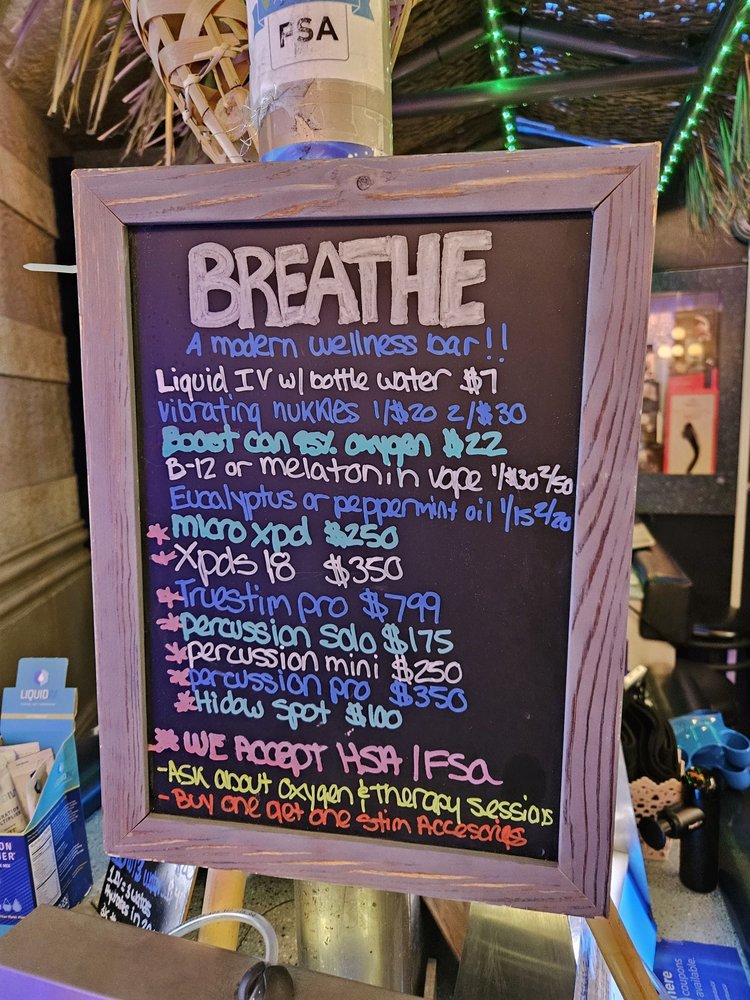 FSA
BREATHE
A modern wellness bar!!
Liquid IV w/ bottle water $7
vibrating nukkles 1/$20 2/$30
Boost can 95% oxygen $22
B-12 or melatonin vape 1/$30 2/50
Eucalyptus or peppermint oil 1/15 2/20
* micro xpd $250
* Xpds 18 $350
* Truestim pro $799
* percussion solo $175
* percussion mini $250
* percussion pro $350
* Hidow spot $100
* WE ACCEPT HSA/FSA
- ASK about Oxygen & therapy sessions
- Buy one get one Stim Accesories
LIQUID
coupons
available.